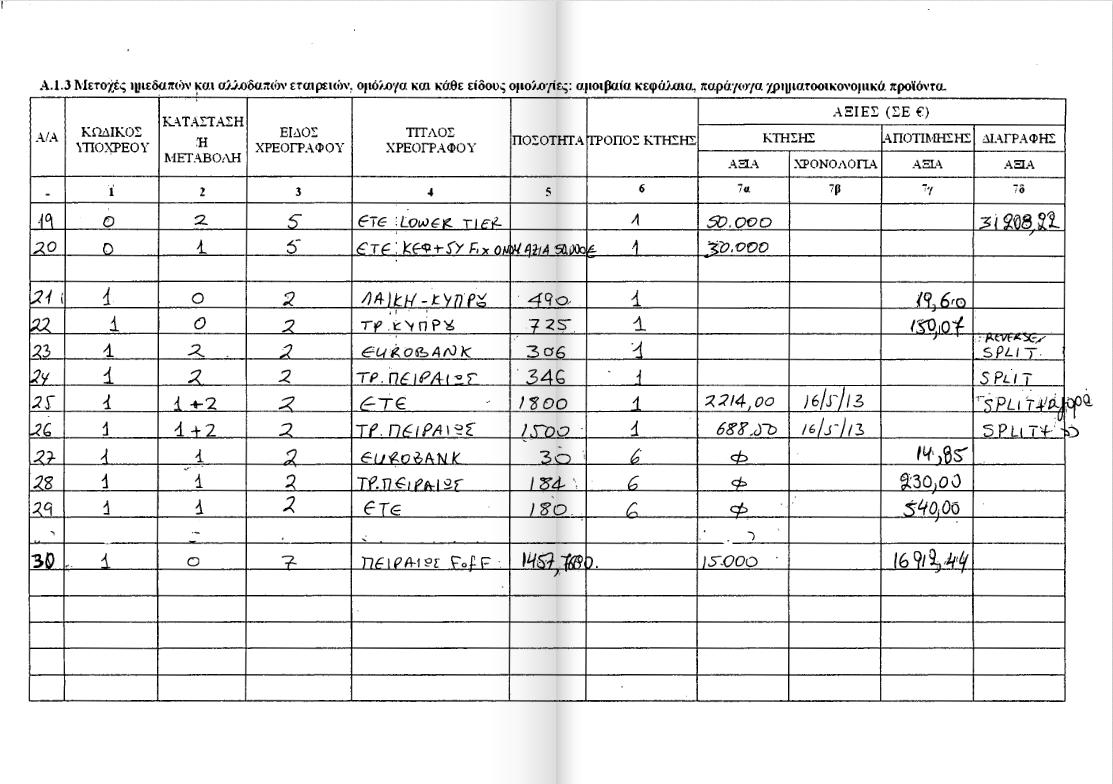 Α.1.3 Μετοχές ημεδαπών και αλλοδαπών εταιρειών, ομόλογα και κάθε είδους ομολογίες: αμοιβαία κεφάλαια, παράγωγα χρηματοοικονομικά προϊόντα.
ΑΞΙΕΣ (ΣΕ €)
Α/Α ΚΩΔΙΚΟΣ ΥΠΟΧΡΕΟΥ ΚΑΤΑΣΤΑΣΗ Ή ΜΕΤΑΒΟΛΗ ΕΙΔΟΣ ΧΡΕΟΓΡΑΦΟΥ ΤΙΤΛΟΣ ΧΡΕΟΓΡΑΦΟΥ ΠΟΣΟΤΗΤΑ ΤΡΟΠΟΣ ΚΤΗΣΗΣ ΚΤΗΣΗΣ ΑΠΟΤΙΜΗΣΗΣ ΔΙΑΓΡΑΦΗΣ
ΑΞΙΑ ΧΡΟΝΟΛΟΓΙΑ ΑΞΙΑ ΑΞΙΑ
- 1 2 3 4 5 6 7α 7β 7γ 7δ
19 0 2 5 ΕΤΕ LOWER TIER 1 50.000 31208,22
20 0 1 5 ΕΤΕ ΚΕΦ+5Υ Fix ΟΝΟΜ ΑΞΙΑ 50.000€ 1 30.000
21 1 0 2 ΛΑΙΚΗ-ΚΥΠΡΟΥ 490 1 19,60
22 1 0 2 ΤΡ.ΚΥΠΡΟΥ 725 1 150,07
23 1 2 2 EUROBANK 306 1 REVERSE SPLIT
24 1 2 2 ΤΡ.ΠΕΙΡΑΙΩΣ 346 1 SPLIT
25 1 1+2 2 ΕΤΕ 1800 1 2214,00 16/5/13 SPLIT+αγορά
26 1 1+2 2 ΤΡ.ΠΕΙΡΑΙΩΣ 1500 1 688.50 16/5/13 SPLIT+
27 1 1 2 EUROBANK 30 6 Φ 14,85
28 1 1 2 ΤΡ.ΠΕΙΡΑΙΩΣ 184 6 Φ 230,00
29 1 1 2 ΕΤΕ 180 6 Φ 540,00
30 1 0 7 ΠΕΙΡΑΙΩΣ FofF 15.000 16912,44